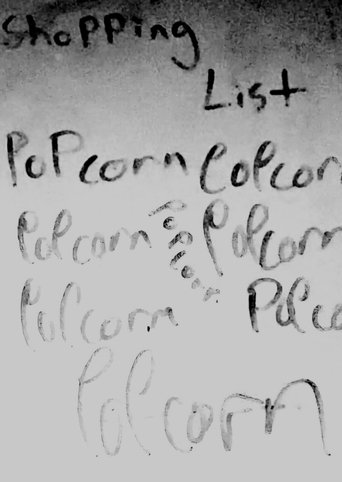 Shopping
List
PoPcorn Popcorn
Popcorn Popcorn Popcorn
Popcorn Popco
Popcorn